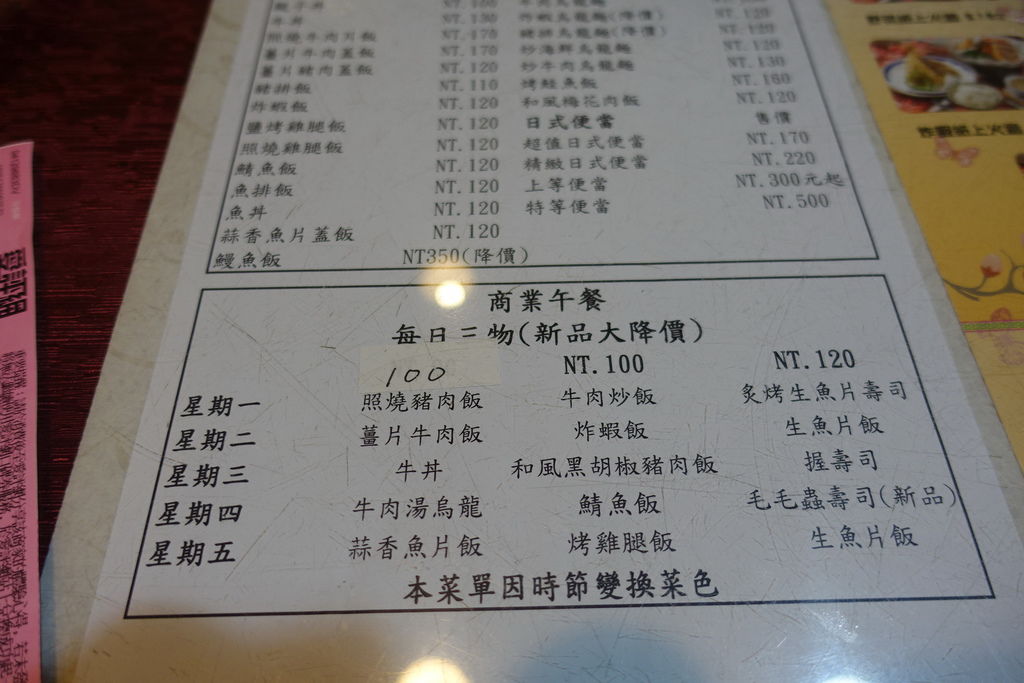 牛丼 NT.130 炸蝦烏龍麵(降價) NT.120
照燒牛肉片飯 NT.175 豬排烏龍麵(降價) NT.120
薑片牛肉蓋飯 NT.170 炒海鮮烏龍麵 NT.120
薑片豬肉蓋飯 NT.120 炒牛肉烏龍麵 NT.130
豬排飯 NT.110 烤鮭魚飯 NT.160
炸蝦飯 NT.120 和風梅花肉飯 NT.120
鹽烤雞腿飯 NT.120 日式便當 售價
照燒雞腿飯 NT.120 超值日式便當 NT.170
鯖魚飯 NT.120 精緻日式便當 NT.220
魚排飯 NT.120 上等便當 NT.300元起
魚丼 NT.120 特等便當 NT.500
蒜香魚片蓋飯 NT.120
鰻魚飯 NT350(降價)
商業午餐
每日三物(新品大降價)
100 NT.100 NT.120
星期一 照燒豬肉飯 牛肉炒飯 炙烤生魚片壽司
星期二 薑片牛肉飯 炸蝦飯 生魚片飯
星期三 牛丼 和風黑胡椒豬肉飯 握壽司
星期四 牛肉湯烏龍 鯖魚飯 毛毛蟲壽司(新品)
星期五 蒜香魚片飯 烤雞腿飯 生魚片飯
本菜單因時節變換菜色